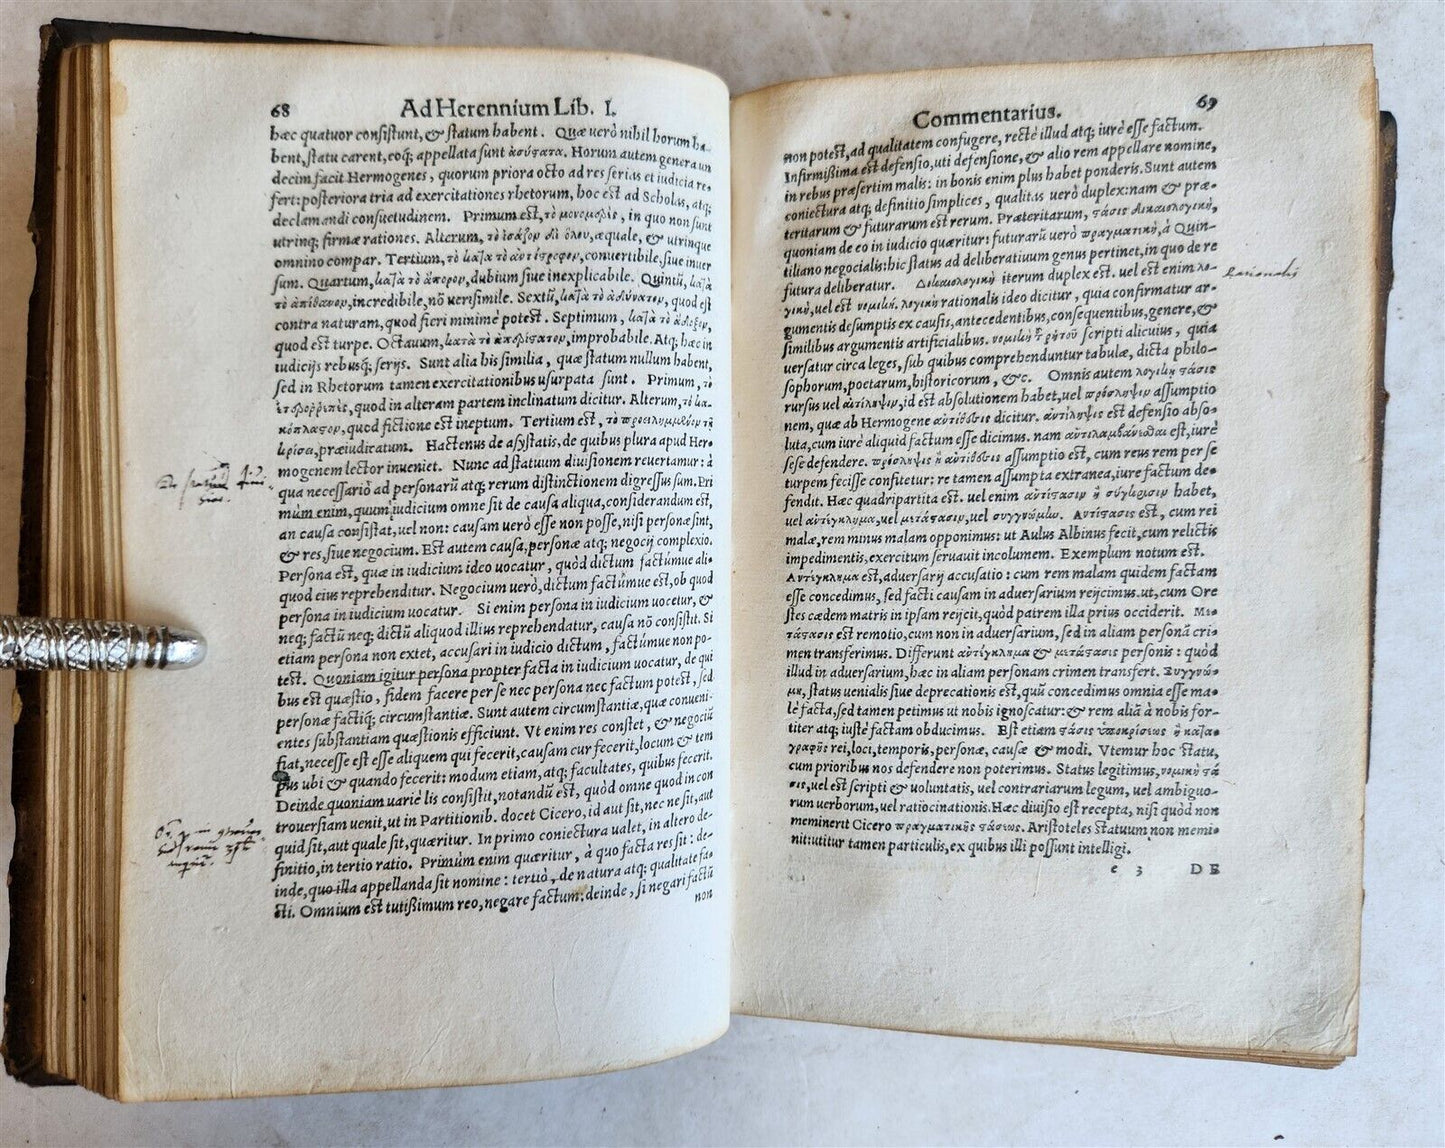 68 Ad Herennium Lib. I.
hæc quatuor consistunt, & statum habent. Quæ verò nihil horum ha-
bent, statu carent, eoq; appellata sunt ἀσύστατα. Horum autem genera un
decim facit Hermogenes, quorum priora octo ad res serias et iudicia re-
fert: posteriora tria ad exercitationes rhetorum, hoc est ad Scholas, atq;
declamandi consuetudinem. Primum est, τὸ μονομερὲς, in quo non sunt
utrinq; firmæ rationes. Alterum, τὸ ἰσάζον δι ὅλου, æquale, & utrinque
omnino compar. Tertium, τὸ κατὰ τὸ ἀντίστρεφον, conuertibile, siue inuer
sum. Quartum, κατὰ τὸ ἄπορον, dubium siue inexplicabile. Quintũ, κατὰ
τὸ ἀπίθανον, incredibile, nõ uerisimile. Sextũ, κατὰ τὸ ἀδύνατον, quod est
contra naturam, quod fieri minimè potest. Septimum, κατὰ τὸ ἄδοξον,
quod est turpe. Octauum, κατὰ τὸ ἀπερίστατον, improbabile. Atq; hæc in
iudicijs rebusq; serijs. Sunt alia his similia, quæ statum nullum habent,
sed in Rhetorum tamen exercitationibus usurpata sunt. Primum, τὸ
ἑτερορρεπὲς, quod in alteram partem inclinatum dicitur. Alterum, τὸ κα-
κόπλαστον, quod fictione est ineptum. Tertium est, τὸ προειλημμένον τῇ
κρίσει, præiudicatum. Hactenus de asystatis, de quibus plura apud Her-
mogenem lector inueniet. Nunc ad statuum diuisionem reuertamur: à
qua necessariò ad personarũ atq; rerum distinctionem digressus sum. Pri
mùm enim, quum iudicium omne sit de causa aliqua, considerandum est,
an causa consistat, uel non: causam uerò esse non posse, nisi personæ sint,
& res, siue negocium. Est autem causa, personæ atq; negocij complexio.
Persona est, quæ in iudicium ideo uocatur, quòd dictum factúmue ali-
quod eius reprehenditur. Negocium uerò, dictum factúmue est, ob quod
persona in iudicium uocatur. Si enim persona in iudicium uocetur, &
neq; factũ neq; dictũ aliquod illius reprehendatur, causa nõ consistit. Si
etiam persona non extet, accusari in iudicio dictum, factúmue non po-
test. Quoniam igitur persona propter facta in iudicium uocatur, de qui
bus est quæstio, fidem facere per se nec persona nec factum potest, sed
personæ factiq; circumstantiæ. Sunt autem circumstantiæ, quæ conueni-
entes substantiam quæstionis efficiunt. Vt enim res constet, & negociũ
fiat, necesse est esse aliquem qui fecerit, causam cur fecerit, locum & tem
pus ubi & quando fecerit: modum etiam, atq; facultates, quibus fecerit.
Deinde quoniam uariè lis consistit, notandũ est, quòd omne quod in con
trouersiam uenit, ut in Partitionib. docet Cicero, id aut sit, nec ne sit, aut
quid sit, aut quale sit, quæritur. In primo coniectura ualet, in altero de-
finitio, in tertio ratio. Primùm enim quæritur, à quo facta res sit: de-
inde, quo illa appellanda sit nomine: tertiò, de natura atq; qualitate fa-
cti. Omnium est tutissimum reo, negare factum: deinde, si negari factũ
non
Commentarius. 69
non potest, ad qualitatem confugere, rectè illud atq; iurè esse factum.
Infirmissima est defensio, uti defensione, & alio rem appellare nomine,
in rebus præsertim malis: in bonis enim plus habet ponderis. Sunt autem
coniectura atq; definitio simplices, qualitas uerò duplex: nam & præ-
teritarum & futurarum est rerum. Præteritarum, στάσις δικαιολογικὴ,
quoniam de eo in iudicio quæritur: futurarũ uerò πραγματικὴ, à Quin-
tiliano negocialis: hic status ad deliberatiuum genus pertinet, in quo de re
futura deliberatur. Δικαιολογικὴ iterum duplex est. uel est enim λο-
γικὴ, uel est νομικὴ. λογικὴ rationalis ideo dicitur, quia confirmatur ar-
gumentis desumptis ex causis, antecedentibus, consequentibus, genere, &
similibus argumentis artificialibus. νομικὴ ἢ ῥητοῦ scripti alicuius, quia
uersatur circa leges, sub quibus comprehenduntur tabulæ, dicta philo-
sophorum, poetarum, historicorum, &c. Omnis autem λογικὴ στάσις
rursus uel ἀντίληψιν, id est absolutionem habet, uel πρόσληψιν assumptio
nem, quæ ab Hermogene ἀντίθεσις dicitur. ἀντίληψις est defensio abso-
luta, cum iurè aliquid factum esse dicimus. nam ἀντιλαμβάνεσθαι est, iurè
sese defendere. πρόσληψις ἢ ἀντίθεσις assumptio est, cum reus rem per se
turpem fecisse confitetur: re tamen assumpta extranea, iure factum de-
fendit. Hæc quadripartita est. uel enim ἀντίστασιν ἢ σύγκρισιν habet,
uel ἀντέγκλημα, uel μετάστασιν, uel συγγνώμην. Ἀντίστασις est, cum rei
malæ, rem minus malam opponimus: ut Aulus Albinus fecit, cum relictis
impedimentis, exercitum seruauit incolumem. Exemplum notum est.
Ἀντέγκλημα est, aduersarij accusatio: cum rem malam quidem factam
esse concedimus, sed facti causam in aduersarium reijcimus. ut, cum Ore
stes cædem matris in ipsam reijcit, quòd patrem illa prius occiderit. Με-
τάστασις est remotio, cum non in aduersarium, sed in aliam personã cri-
men transferimus. Differunt ἀντέγκλημα & μετάστασις personis: quòd
illud in aduersarium, hæc in aliam personam crimen transfert. Συγγνώ-
μη, status uenialis siue deprecationis est, quũ concedimus omnia esse ma-
lè facta, sed tamen petimus ut nobis ignoscatur: & rem aliã à nobis for-
titer atq; iustè factam obducimus. Est etiam στάσις ὑποκρίσεως ἢ κατα-
γραφῆς rei, loci, temporis, personæ, causæ & modi. Vtemur hoc statu,
cum prioribus nos defendere non poterimus. Status legitimus, νομικὴ στά
σις, uel est scripti & uoluntatis, uel contrariarum legum, uel ambiguo-
rum uerborum, uel ratiocinationis. Hæc diuisio est recepta, nisi quòd non
meminerit Cicero πραγματικῆς στάσεως. Aristoteles statuum non memi-
nit: utitur tamen particulis, ex quibus illi possunt intelligi.
e 3 DE
rationalis